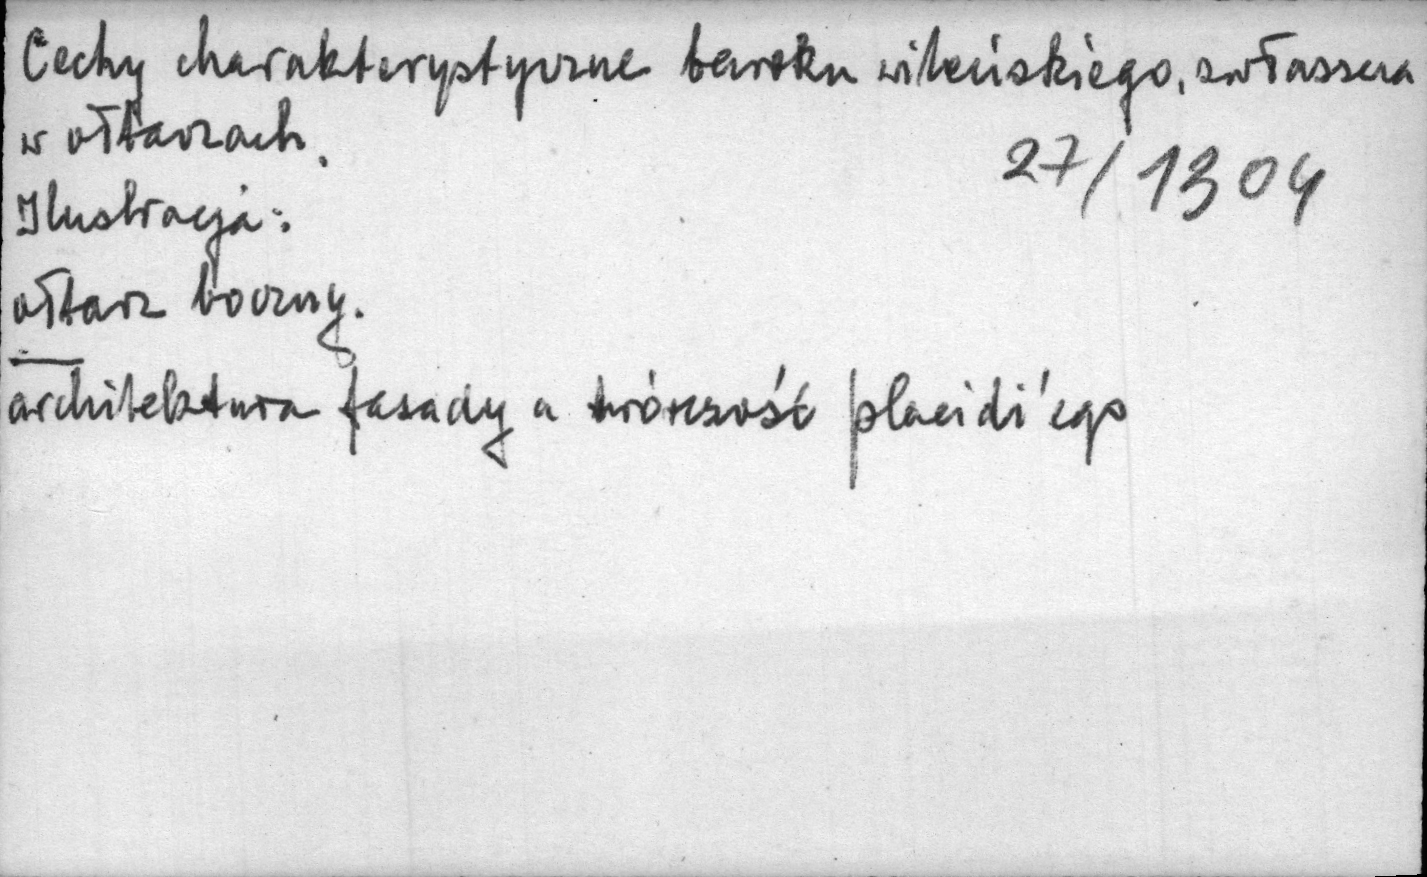 Cechy charakterystyczne baroku wileńskiego, zwłaszcza
w ołtarzach.
27/1304
Ilustracja:
ołtarz boczny.
architektura fasady a twórczość placidi'ego